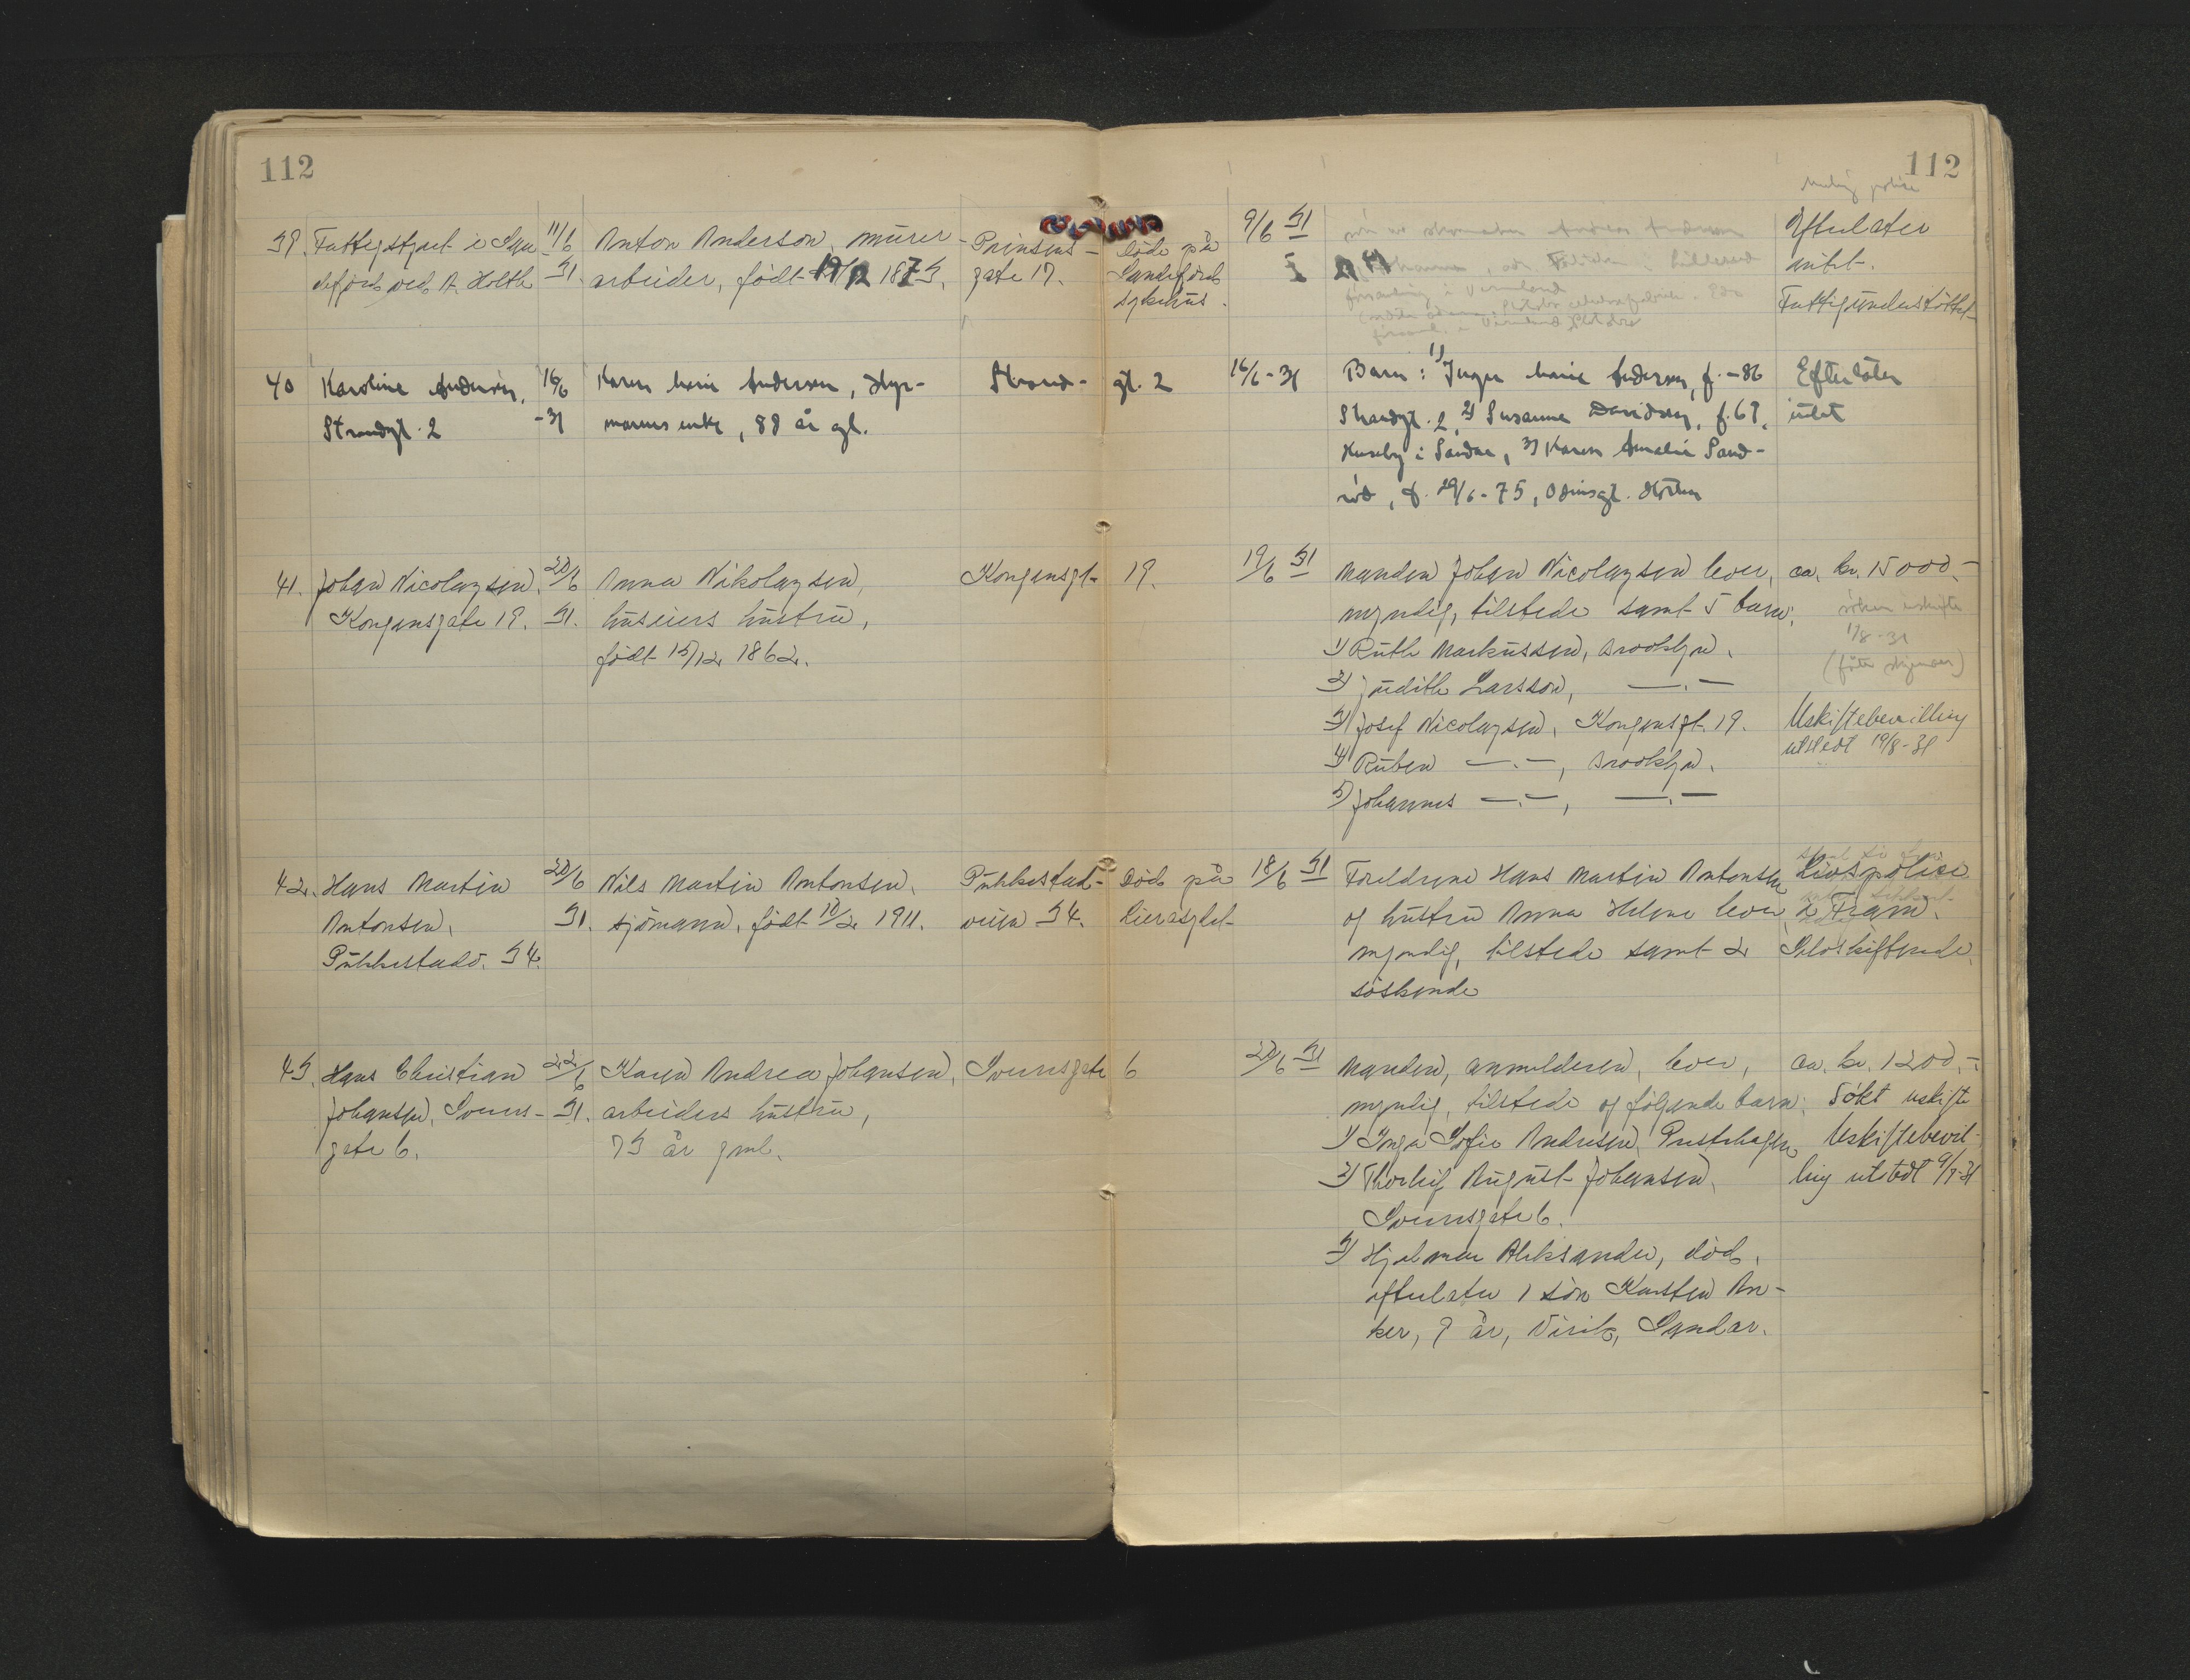 112
112
39. Fattigstyret i San
defjord ved A. Holth
11/6
31.
Anton Anderson, murer
arbeider, født 19/12 1873.
Prinsens-
gate 17.
Døde på
Sandefjord
sykehus.
9/6 31
Efterlater
intet.
Fattigunderstöttet
40
Karoline Andersen,
Strandgt. 2
16/6
-31
Karen Marie Andersen, styr-
manns enke, 88 år gl.
Strand-
gt. 2
16/6-31
Barn: 1) Inger Marie Andersen, f. -86
Strandgt. 2, 2) Susanne Davidsen, f. 67,
Huseby i Sandar, 3) Karen Amalie Sand-
rød, f. 29/6-75, Odinsgt. Horten
Efterlater
intet
41. Johan Nicolaysen.
Kongensgate 19.
20/6
31.
Anna Nikolaysen,
huseiers hustru,
født 15/12 1862.
Kongensgt-
19.
19/6 31
Manden Johan Nicolaysen lever,
myndig, tilstede samt 5 barn:
1) Ruth Markussen, Brooklyn.
2) Judith Larsson, —.—
3) Josef Nicolaysen, Kongensgt. 19.
4) Ruben —.—, Brooklyn.
5) Johannes —.—, —.—
ca. kr. 15000.-
søker uskifte
1/8-31
Uskiftebevilling
utstedt 19/8-31
42. Hans Martin
Antonsen,
Pukkestadv. 34.
20/6
31.
Nils Martin Antonsen,
sjømann, født 10/2 1911.
Pukkestad-
veien 34.
Død på
Lieråsylet
18/6 31
Foreldrene Hans Martin Antonsen
og hustru Anna Helene lever
myndig, tilstede samt 2
søskende
Livspolice
i Fram.
Selvskiftende.
43. Hans Christian
Johansen, Sverres-
gate 6.
22/6
31.
Karen Andrea Johansen,
arbeiders hustru,
73 år gml.
Sverresgate
6
20/6 31
Manden, anmelderen, lever,
myndig, tilstede og følgende barn:
1) Inga Sofie Andresen, Prestehagen
2) Thorleif August Johansen,
Sverresgate 6.
3) Hjalmar Aleksander, død,
efterlater 1 søn Karsten An-
ker, 9 år, Virik, Sandar.
ca. kr. 1200.-
Søkt uskifte
Uskiftebevil-
ling utstedt 9/7-31